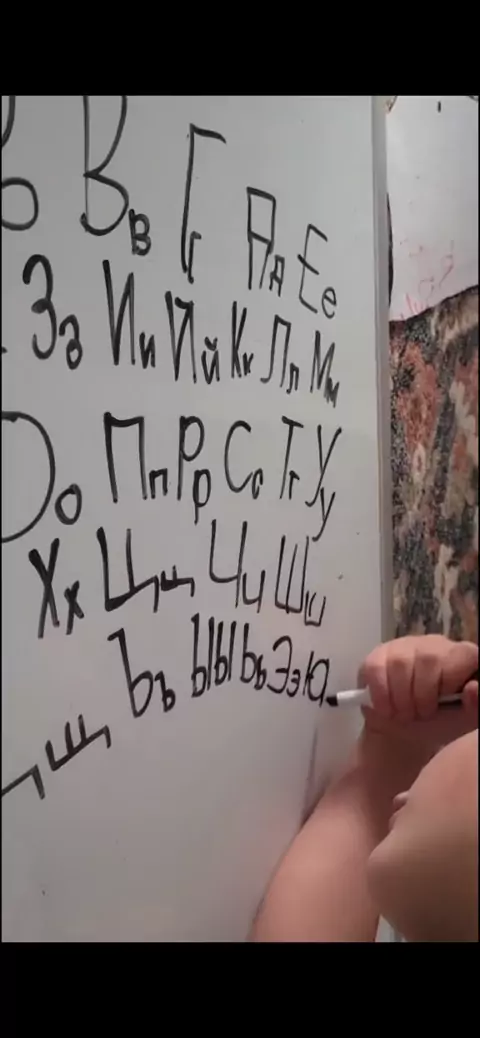 Вв Гг Дд Ее
Зз Ии Йй Кк Лл Мм
Оо Пп Рр Сс Тт Уу
Хх Цц Чч Шш
щ Ъъ Ыы Ьь Ээ Ю